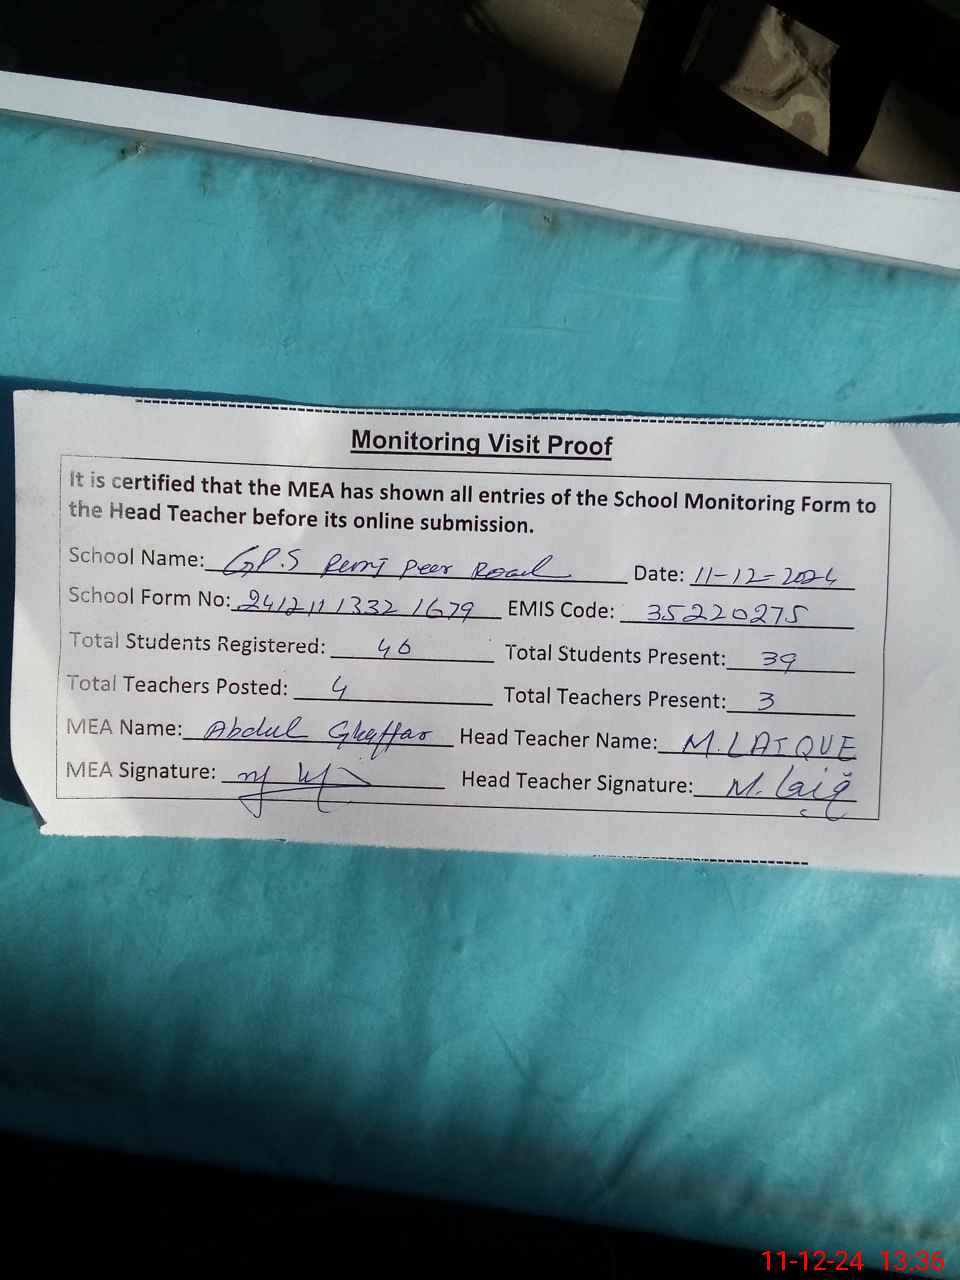 Monitoring Visit Proof
It is certified that the MEA has shown all entries of the School Monitoring Form to
the Head Teacher before its online submission.
School Name: G.P.S Peer Road Date: 11-12-2024
School Form No: 241211 1332 1679 EMIS Code: 35220275
Total Students Registered: 46 Total Students Present: 39
Total Teachers Posted: 4 Total Teachers Present: 3
MEA Name: Abdul Ghaffar Head Teacher Name: M. LAIQUE
MEA Signature: Head Teacher Signature: M. Laiq
11-12-24 13:36